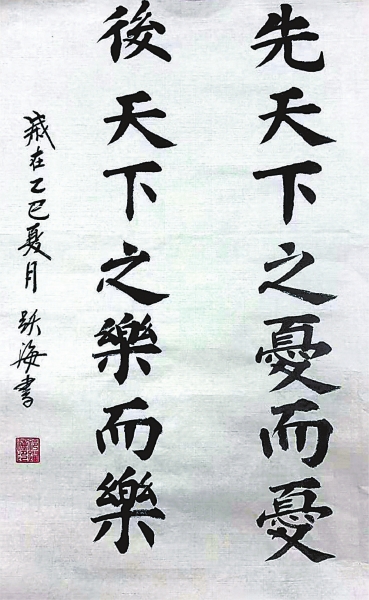 先天下之憂而憂
後天下之樂而樂
歲在乙巳夏月 跃海書